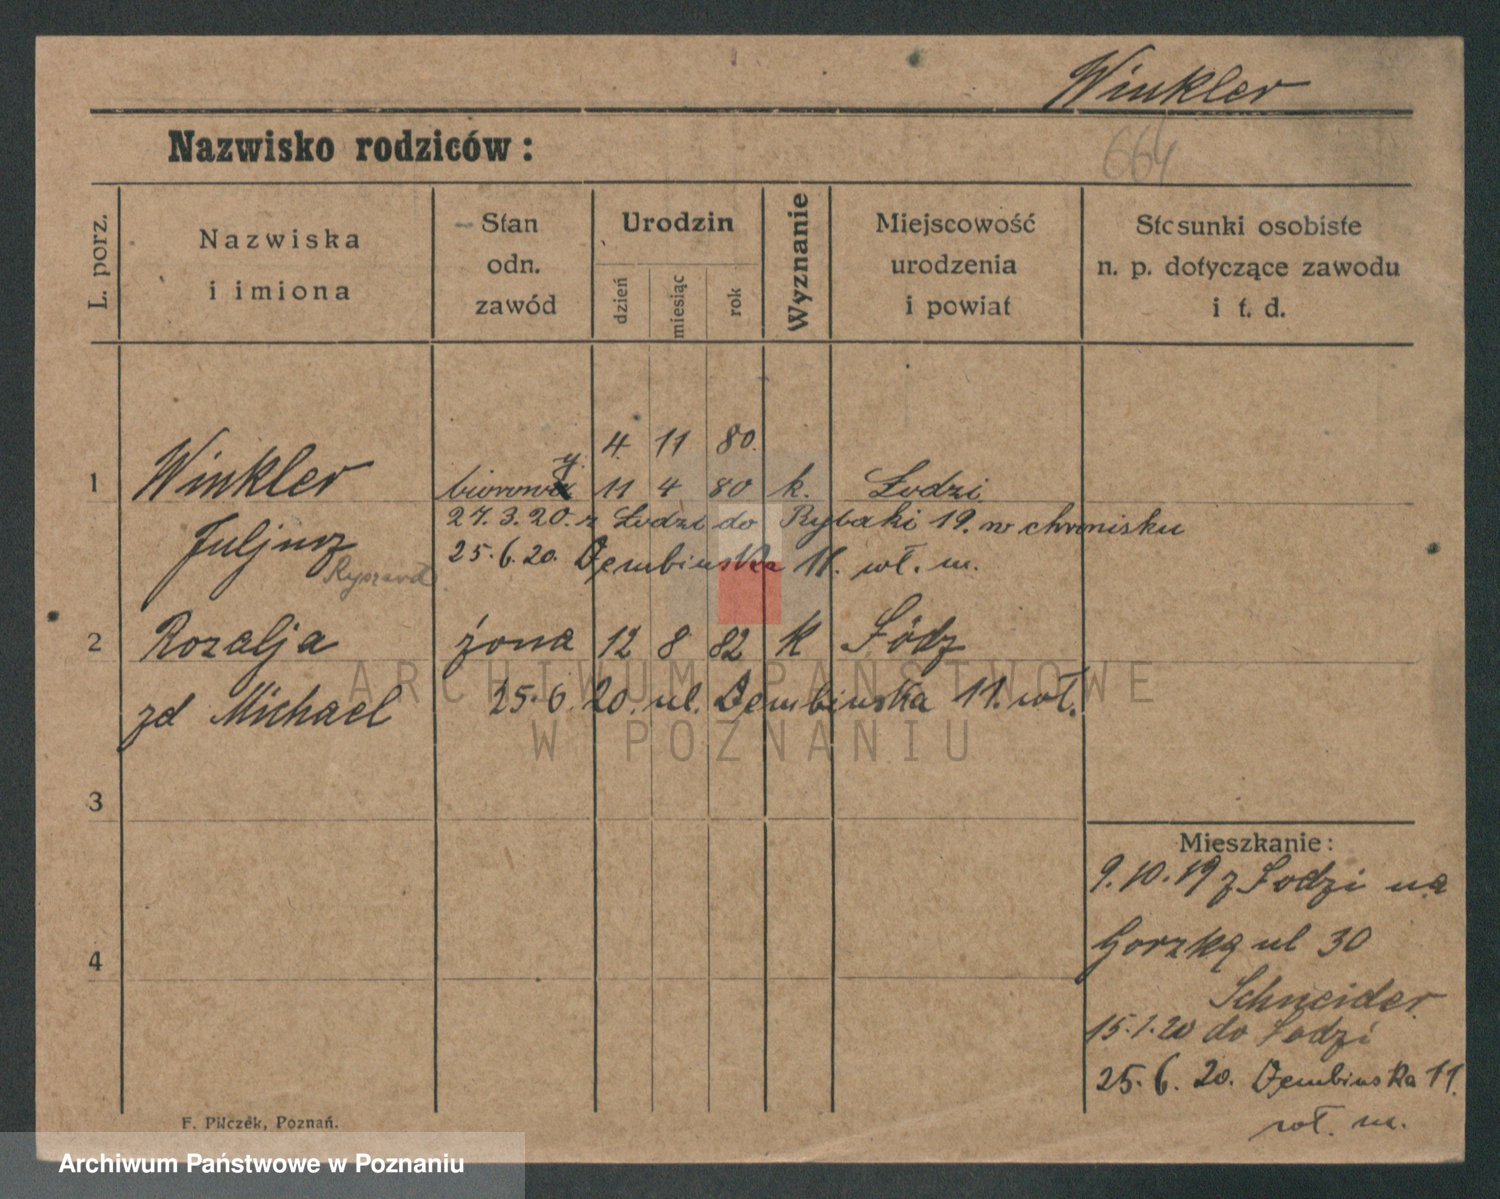 Winkler
664
Nazwisko rodziców:
L. porz.
Nazwiska i imiona
Stan odn. zawód
Urodzin
dzień
miesiąc
rok
Wyznanie
Miejscowość urodzenia i powiat
Stosunki osobiste n. p. dotyczące zawodu i t. d.
4. 11 80.
1 Winkler biurowy 11 4 80 k. Łodzi
27.3.20. z Łodzi do Rybaki 19. w chronisku
Juljusz
Ryszard
25.6.20. Dembinska 11. wł. m.
2 Rozalja żona 12 8 82 k Łódz
zd Michael 25.6.20. ul. Dembinska 11. wł.
3
Mieszkanie:
9.10.19 z Łodzi na
Gorzką ul 30
4
Schneider
15.1.20 do Łodzi
25.6.20. Dembinska 11.
wł. m.
F. Pilczek, Poznań.
ARCHIWUM PAŃSTWOWE
W POZNANIU
Archiwum Państwowe w Poznaniu